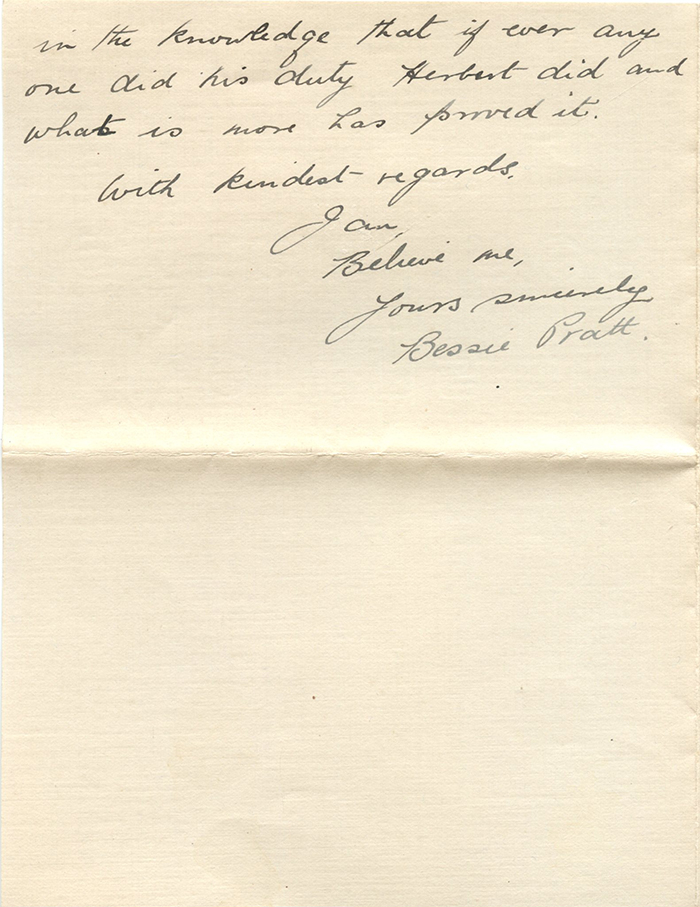 in the knowledge that if ever any
one did his duty Herbert did and
what is more has proved it.
With kindest regards.
I am,
Believe me,
Yours sincerely
Bessie Pratt.